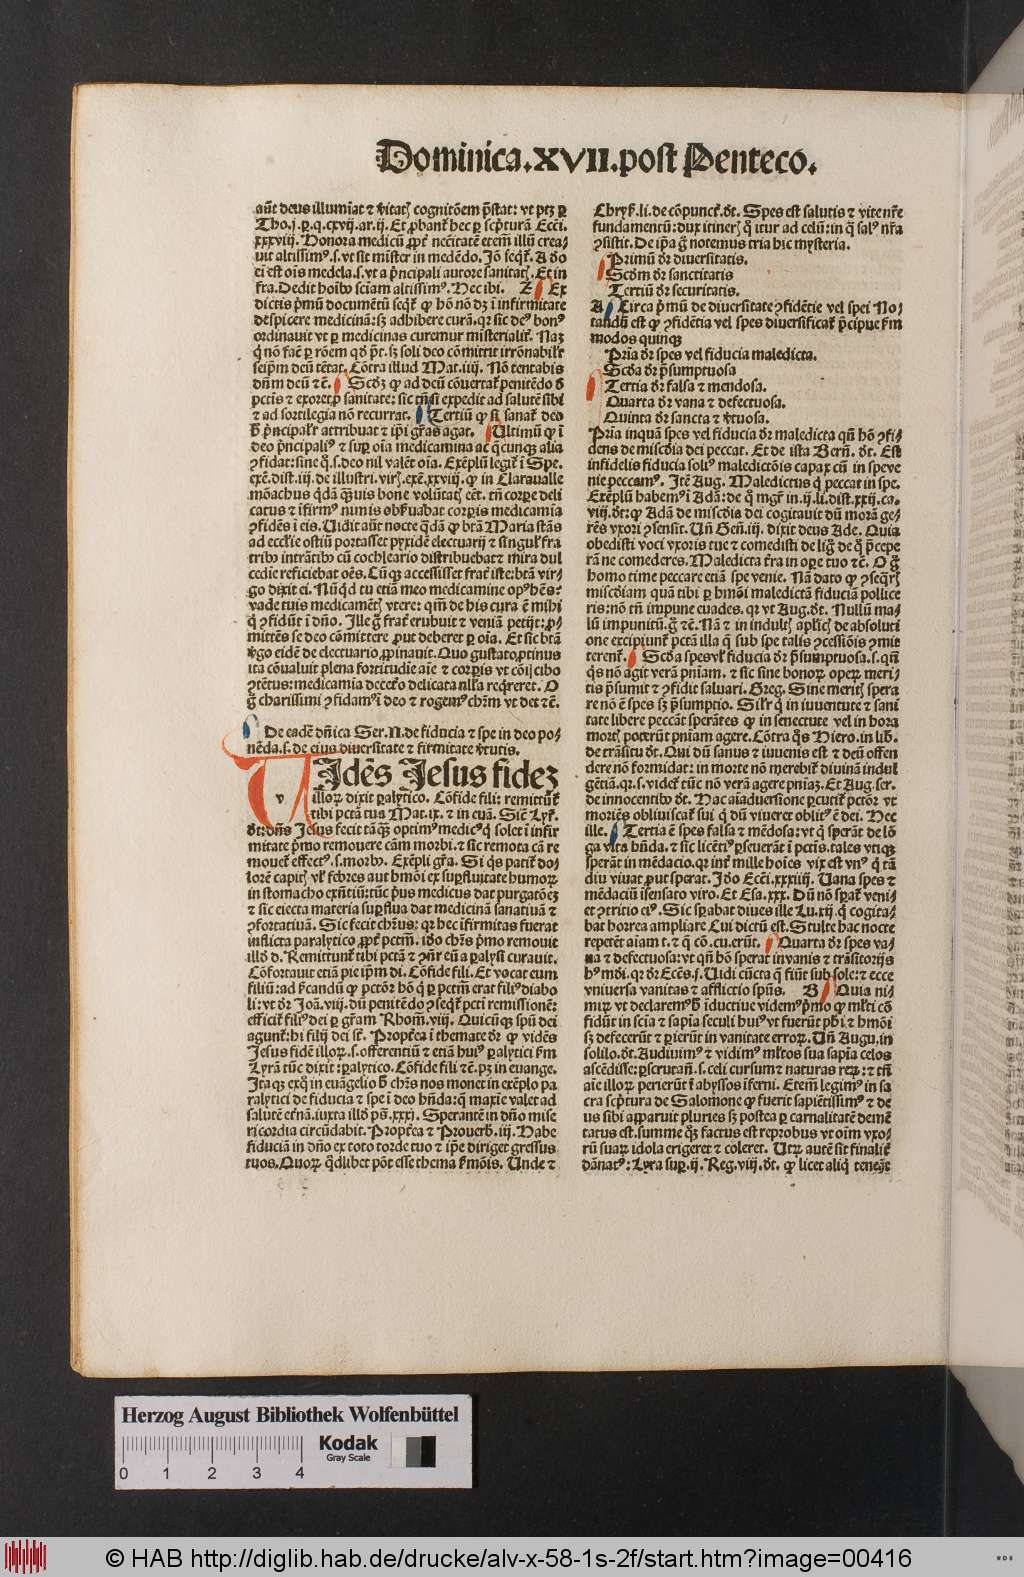 Dominica.XVII.post Penteco.
aūt deus illumīat ⁊ v̄itatē cognitōem p̄stat: vt ptȝ ꝑ
Tho.j.ꝑ.q.cxvij.ar.ij. Et ꝓbant hec ꝑ sc̄pturā Ecci.
xxxviij. Honora medicū
uit altissimꝰ.s.vt sit mister in medēdo. Jō seqt̄. A deo
ci est oīs medela.s.vt a p̄ncipali autore sanitatē. Et in
fra. Dedit hoībꝰ sciam altissimꝰ. Hec ibi. Z Ex
dictis p̄mū documētū seqt̄ ꝙ hō nō dȝ ī infirmitate
despicere medicinā: sȝ adhibere curā. qꝛ sic deꝰ bonꝰ
ordinauit vt ꝑ medicinas curemur misterialiť. Naȝ
seip̄m deū tētat. Cōtra illud Mat.iiij. Nō tentabis
dn̄m deū ⁊c̄. Scdȝ ꝙ ad deū cōuertat̄ penitēdo ð
pctīs ⁊ exoret ꝓ sanitate: sic tn̄ si expedit ad salutē sibi
⁊ ad sortilegia nō recurrat. Tertiū ꝙ si sanat̄ deo
ð p̄ncipalr̄ attribuat ⁊ ip̄i gr̄as agat. Ultimū ꝙ ī
deo p̄ncipaliꝰ ⁊ suꝑ oīa medicamina ac q̄cunqꝫ alia
ꝯfidat: sine q̄.s.deo nil valēt oīa. Exēplū legit̄ ī Spe.
exē.dist.iij.de illustri.virḡ.exē.xxviij. ꝙ in Claraualle
mōachus qdā q̄uis bone volūtatꝭ eēt. tn̄ corꝑe deli
catus ⁊ īfirmꝰ nimis obẜuabat corꝑis medicamīa
ꝯfidēs ī eis. Uidit aūt nocte qdā ꝙ btā Maria stās
ad eccl̄ie ostiū portasset pyxidē electuarij ⁊ singulꝭ fra
tribꝰ intrātibꝰ cū cochleario distribuebat ⁊ mira dul
cedie reficiebat oēs. Cūqꝫ accessisset frat̄ iste: btā vir⸗
go dixit ei. Nūqd tu etiā meo medicamine opꝰ hēs:
vade tuis medicamētꝭ vtere: qm̄ de his cura ē mihi
q̄ ꝯfidūt ī dn̄o. Ille ḡ frat̄ erubuit ⁊ veniā petijt: ꝓ⸗
mittēs se deo cōmittere ꝓut deberet ꝑ oīa. Et sic btā
v̄go eidē de electuario ꝓpinauit. Quo gustato ꝓtinus
ita cōualuit plena fortitudīe aīe ⁊ corꝑis vt cōij cibo
ꝯtētus: medicamīa decetero delicata nl̄la reqreret. O
ḡ charissimi ꝯfidamꝰ ī deo ⁊ rogemꝰ chr̄m vt det ⁊c̄.
De eadē dn̄ica Ser.N.de fiducia ⁊ spe in deo po⸗
nēda.s.de eius diuersitate ⁊ firmitate v̄tutis.
v
Idēs Jesus fideȝ
illoꝝ dixit paralytico. Cōfide fili: remittūt̄
tibi pctā tua Mat.ix. ⁊ in euā. Sic̄ Lyr̄.
ðt: dn̄s Jesus fecit tāqȝ optimꝰ medicꝰ q̄ solet ī infir
mitate p̄mo remouere cām morbi. ⁊ sic remota cā re
mouet̄ effectꝰ.s.morbꝰ. Exēpli gr̄a. Si q̄s patit̄ do⸗
lorē capitꝭ vl̄ febres aut hmōi ex suꝑfluitate humoꝝ
in stomacho exn̄tiū: tūc p̄us medicus dat purgatōeȝ
⁊ sic eiecta materia suꝑflua dat medicinā sanatiuā ⁊
ꝯfortatiuā. Sic fecit chr̄us: qꝛ hec īfirmitas fuerat
inflicta paralytico ꝓpt̄ pctm̄. ido chr̄s p̄mo remouit
illd̄ d. Remittunt̄ tibi pctā ⁊ ꝯn̄r eū a paralysi curauit.
Cōfortauit etiā pie ip̄m dī. Cōfide fili. Et vocat eum
filiū: ad ẜcandū ꝙ pctōr hō q̄ ꝑ pctm̄ erat filiꝰ diabo
li: vt dr̄ Joā.viij. dū penitēdo ꝯseqt̄ pcti remissionē:
efficit̄ filiꝰ dei ꝑ gr̄am Rhom.viij. Quicūqꝫ spū dei
agunt̄: hi filij dei st̄. Propt̄ea ī themate dr̄ ꝙ vidēs
Jesus fidē illoꝝ.s.offerentiū ⁊ etiā huiꝰ paralytici ẜm
Lyrā tūc dixit: paralytico. Cōfide fili ⁊c̄. pȝ in euange.
Itaqȝ exq̄ in euāgelio ð chr̄s nos monet in exēplo pa
ralytici de fiducia ⁊ spe ī deo hn̄da: q̄ maxīe valet ad
salutē et̄nā. iuxta illd̄ ps̄.xxxj. Sperantē in dn̄o mise
ricordia circūdabit. Propt̄ea ⁊ Prouerb̄.iij. Habe
fiduciā in dn̄o ex toto corde tuo ⁊ ip̄e diriget gressus
tuos. Quoꝝ qdlibet pōt esse thema ẜmōis. Unde ⁊
Chrys̄.li.de cōpunct̄.ðt. Spes est salutis ⁊ vite nr̄e
fundamentū: dux itinerꝭ q̄ itur ad celū: in q̄ salꝰ nr̄a
ꝯsistit. De ip̄a ḡ notemus tria hic mysteria.
Primū dr̄ diuersitatis.
Scdm̄ dr̄ sanctitatis
Tertiū dr̄ securitatis.
A Circa p̄mū de diuersitate ꝯfidētie vel spei No⸗
tandū est ꝙ ꝯfidētia vel spes diuersificat̄ p̄cipue ẜm
modos quinqȝ
Pria dr̄ spes vel fiducia maledicta.
Scda dr̄ p̄sumptuosa
Tertia dr̄ falsa ⁊ mendosa.
Quarta dr̄ vana ⁊ defectuosa.
Quinta dr̄ sancta ⁊ v̄tuosa.
Pria inquā spes vel fiducia dr̄ maledicta qn̄ hō ꝯfi⸗
dens de misc̄dia dei peccat. Et de ista Bern̄.ðt. Est
infidelis fiducia soliꝰ maledictōis capax cū in spe ve
nie peccamꝰ. Itē Aug. Maledictus q̄ peccat in spe.
Exēplū habemꝰ ī Adā: de q̄ mgr̄ in.ij.li.dist.xxij.ca.
viij.ðt: ꝙ Adā de misc̄dia dei cogitauit dū morā ge⸗
rēs vxori ꝯsensit. Un̄ Gen̄.iij. dixit deus Ade. Quia
obedisti voci vxoris tue ⁊ comedisti de lig̃ de q̄ p̄cepe
rā ne comederes. Maledicta t̄ra in oꝑe tuo ⁊c̄. O ḡ
homo time peccare etiā spe venie. Nā dato ꝙ ꝯseqrꝭ
misc̄diam quā tibi ꝑ hmōi maledictā fiduciā pollice
ris: nō tn̄ impune euades. qꝛ vt Aug.ðt. Nullū ma⸗
lū impunitū. ḡ ⁊c̄. Nā ⁊ in indultꝭ aplicꝭ de absoluti
one excipiunt̄ pctā illa q̄ sub spe talis ꝯcessiōis ꝯmit
terent̄. Scda spes vl̄ fiducia dr̄ p̄sumptuosa.s.qn̄
q̄s nō agit verā pn̄iam. ⁊ sic sine bonoꝝ oꝑeꝝ meri⸗
tis p̄sumit ⁊ ꝯfidit saluari. Greg. Sine meritꝭ spera
re nō ē spes sȝ p̄sumptio. Silr̄ q̄ in iuuentute ⁊ sani
tate libere peccāt sperātes ꝙ in senectute vel in hora
mortꝭ poterūt pn̄iam agere. Cōtra q̄s Hiero.in lib.
de trāsitu ðt. Qui dū sanus ⁊ iuuenis est ⁊ deū offen
dere nō formidat: in morte nō merebit̄ diuinā indul
gētiā. qꝛ.s.videt̄ tūc nō verā agere pn̄iaȝ. Et Aug. ser.
de innocentibꝰ ðt. Hac aīaduersione ꝑcutit̄ pctōr vt
moriēs obliuiscat̄ sui q̄ dū viueret oblitꝰ ē dei. Hec
ille. Tertia ē spes falsa ⁊ mēdosa: vt q̄ sperāt de lō
ga vita hn̄da. ⁊ sic licētiꝰ ꝑseuerāt ī pctīs. tales vtiqȝ
sperāt in mēdacio. qꝛ int̄ mille hoīes vix est vnꝰ q̄ tā
diu viuat ꝓut sperat. Ido Ecci.xxxiiij. Uana spes ⁊
mēdaciū īsensato viro. Et Esa.xxx. Dū nō sꝑat̄ veni⸗
et ꝯtritio eiꝰ. Sic sꝑabat diues ille Lu.xij. q̄ cogita⸗
bat horrea ampliare Cui dictū est. Stulte hac nocte
repetēt aīam t.⁊ q̄ cō.cu.erūt. Quarta dr̄ spes va⸗
na ⁊ defectuosa: vt qn̄ hō sperat in vanis ⁊ trāsitorijs
hꝰ mōi. qꝛ dr̄ Eccēs.j. Uidi cūcta q̄ fiūt sub sole: ⁊ ecce
vniuersa vanitas ⁊ afflictio spūs. B Quia ni⸗
mirꝝ vt declaremꝰ ð īductiue videmꝰ p̄mo ꝙ ml̄ti cō
fidūt in scīa ⁊ sapīa seculi huiꝰ vt fuerūt ph̄i ⁊ hmōi
sȝ defecerūt ⁊ ꝑierūt in vanitate erroꝝ. Un̄ Augu.in
solilo.ðt. Audiuimꝰ ⁊ vidimꝰ ml̄tos sua sapīa celos
ascēdisse: ꝑscrutari.s.celi cursum ⁊ naturas reꝝ: ⁊ tn̄
aīe illoꝝ perierūt ī abyssos īferni. Etem̄ legimꝰ in sa
cra sc̄ptura de Salomone ꝙ fuerit sapiētissimꝰ ⁊ de
us sibi apparuit pluries sȝ postea ꝑ carnalitatē demē
tatus est. summe qȝ factus est reprobus vt oīm vxo⸗
rū suaꝝ idola erigeret ⁊ coleret. Utꝝ autē sit finalit̄
dānatꝰ: Lyra suꝑ.ij. Reg.viij.ðt. ꝙ licet aliq̄ teneāt
Herzog August Bibliothek Wolfenbüttel
Kodak
Gray Scale
0 1 2 3 4
© HAB http://diglib.hab.de/drucke/alv-x-58-1s-2f/start.htm?image=00416